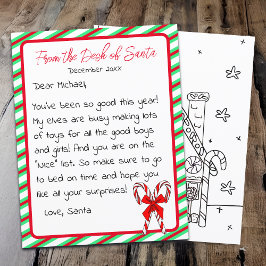 From the Desk of Santa
December 20XX
Dear Michael,
You've been so good this year!
My elves are busy making lots
of toys for all the good boys
and girls! And you are on the
"Nice" list. So make sure to go
to bed on time and hope you
like all your surprises!
Love, Santa